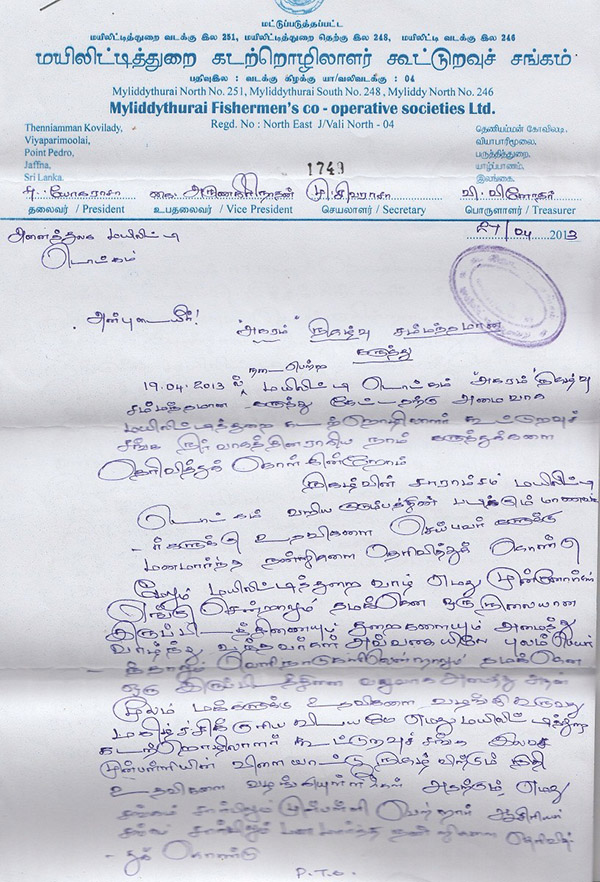 மட்டுப்படுத்தப்பட்ட
மயிலிட்டித்துறை வடக்கு இல 251, மயிலிட்டித்துறை தெற்கு இல 248, மயிலிட்டி வடக்கு இல 246
மயிலிட்டித்துறை கடற்றொழிலாளர் கூட்டுறவுச் சங்கம்
பதிவுஇல : வடக்கு கிழக்கு யா/வலிவடக்கு : 04
Myliddythurai North No. 251, Myliddythurai South No. 248, Myliddy North No. 246
Myliddythurai Fishermen's co - operative societies Ltd.
Regd. No : North East J/Vali North - 04
Thenniamman Kovilady,
Viyaparimoolai,
Point Pedro,
Jaffna,
Sri Lanka.
தெணியம்மன் கோவிலடி,
வியாபாரிமூலை,
பருத்தித்துறை,
யாழ்ப்பாணம்,
இலங்கை.
1749
தலைவர் / President உபதலைவர் / Vice President செயலாளர் / Secretary பொருளாளர் / Treasurer
27/04 2013
அனைத்துலக மயிலிட்டி
ஒன்றியம்
அன்புடையீர்!
"அகரம்" நிகழ்வு சம்மந்தமான
கருத்து
நடைபெற்ற
19.04.2013 ல் மயிலிட்டி "அகரம்" நிகழ்வு
சம்மந்தமான கருத்து கேட்டதற்கு அமைவாக
மயிலிட்டித்துறை கடற்றொழிலாளர் கூட்டுறவுச்
சங்க நிர்வாகத்தினராகிய நாம் கருத்துக்களை
தெரிவித்துக் கொள்கின்றோம்
நிகழ்வின் சாராம்சம் மயிலிட்டி
வறிய குடும்பத்தின் படிக்கும் மாணவ
-ர்களுக்கு உதவிகளை செய்பவர்களுக்கு
மனமார்ந்த நன்றிகளை தெரிவித்துக் கொண்டு
மேலும் மயிலிட்டித்துறை வாழ் எமது முன்னோர்கள்
எங்கு சென்றாலும் தமக்கென ஒரு நிலையான
இருப்பிடத்தினையும் துறைகளையும் அமைத்து
வாழ்ந்து வந்தவர்கள் அவ்வகையிலே புலம்பெயர்
வெளிநாடுகளிலென்றாலும் தமக்கென
ஒரு இருப்பிடத்தினை அமைத்து அதன்
மூலம் மக்களுக்கு உதவிகளை வழங்கி வருவது
மகிழ்ச்சிக்குரிய விடயமே எமது மயிலிட்டித்துறை
கடற்றொழிலாளர் கூட்டுறவுச் சங்க இலவச
முன்பள்ளியின் விளையாட்டு நிகழ்விற்கும் நிதி
உதவிகளை வழங்கியுள்ளீர்கள் அதற்கும் எமது
சங்கம் சார்பிலும் முன்பள்ளி பெற்றோர் ஆசிரியர்
சங்க சார்பிலும் மனமார்ந்த நன்றிகளை தெரிவித்
-துக் கொண்டு
P.T.O.